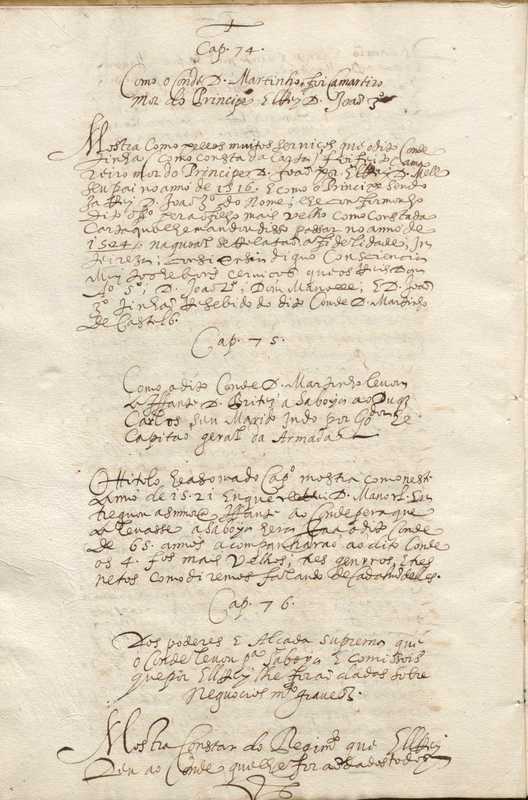 Cap. 74.
Como o Conde D. Martinho foi Camareiro
mor do Principe ElRej D. Joaõ 3º
Mostra Como pellos muitos serviços que o dito Conde
tinha (Como consta da Carta) foi feito Cama
reiro mor do Principe D. Joaõ por ElRej D. Mell
seu pai no anno de 1516. E como o Principe sendo
ja Rej D. Joaõ 3º do Nome; lhe confirmou o
dito off.º pera o filho mais velho Como Consta da
Carta que lhe mandou disso passar no anno de
1524 na qual se Relata a fidelidade; In
teireza;
Muj
Aº 5º; D. Joaõ 2º; Dom Manoell; E D. Joaõ
3º tinhaõ Resebido do dito Conde D. Martinho
de Castelb.
Cap. 75.
Como o dito Conde D. Martinho levou
a Iffante D. Britiz a Saboya ao Duq̃
Carlos seu Marido Indo por Gºr E
Capitaõ geral da Armada
O titolo do Cap.º mostra como nest
anno de 1521 En que D. Manoel En
tregou a Iffante ao Conde pera que
a levasse a Saboya o dito Conde
de 65. annos acompanharaõ ao dito Conde
os 4. fos mais velhos; tres genrros; E tres
netos como diremos fallando de cada hũ delles.
Cap. 76.
Dos poderes E Alcada suprema que
o Conde levou pª Saboya E Comissois
que por ElRej lhe foraõ dadas sobre
Negocios mto graves.
Mostra Constar do Regimto que ElRej
Deu ao Conde que lhe foraõ dados todos